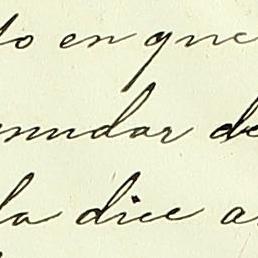 to en que
mudar de
la dice a